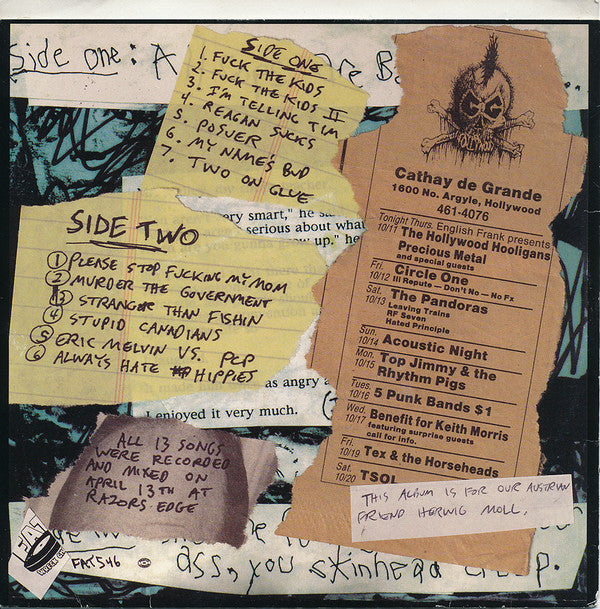 Side one: A
SIDE ONE
1. FUCK THE KIDS
2. FUCK THE KIDS II
3. I'M TELLING TIM
4. REAGAN SUCKS
5. POSUER
6. MY NAME'S BUD
7. TWO ON GLUE
ery smart," he sa
serious about what
w up." he
SIDE TWO
① PLEASE STOP FUCKING MY MOM
② MURDER THE GOVERNMENT
③ STRANGER THAN FISHIN
④ STUPID CANADIANS
⑤ ERIC MELVIN VS. PCP
⑥ ALWAYS HATE HIPPIES
as angry a
I enjoyed it very much.
ALL 13 SONGS
WERE RECORDED
AND MIXED ON
APRIL 13TH AT
RAZORS EDGE
Cathay de Grande
1600 No. Argyle, Hollywood
461-4076
Tonight Thurs. English Frank presents
10/11 The Hollywood Hooligans
Precious Metal
and special guests
Fri. 10/12 Circle One
Ill Repute — Don't No — No Fx
Sat. 10/13 The Pandoras
Leaving Trains
RF Seven
Hated Principle
Sun. 10/14 Acoustic Night
Mon. 10/15 Top Jimmy & the
Rhythm Pigs
Tues. 10/16 5 Punk Bands $1
Wed. 10/17 Benefit for Keith Morris
featuring surprise guests
call for info.
Fri. 10/19 Tex & the Horseheads
Sat. 10/20 TSOL
THIS ALBUM IS FOR OUR AUSTRIAN
FRIEND HERWIG MOLL.
FAT
WRECK CHORDS
FAT546
ass, you skinhead creep.